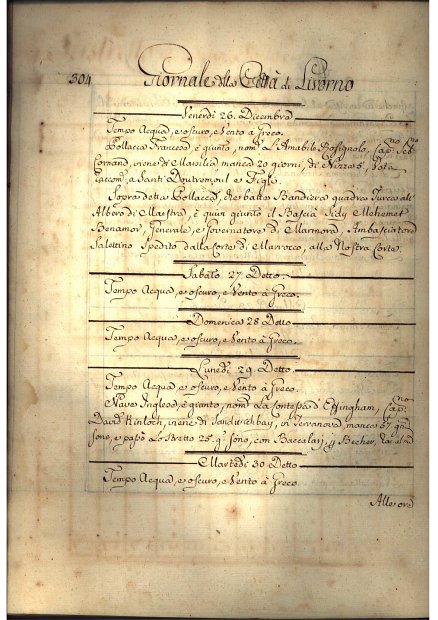 304 Giornale della Città di Livorno
Venerdi 26. Dicembre
Tempo Acqua, e oscuro, e Vento à Greco.
Pollacca Francese è giunto, nom.ª L'Amabile Rosignolo, Cap.no
viene di Marsilia manca 20 giorni, di Nizza 5,
a Santi Doutremoul e Figli.
Sopra detta Pollacca, che batte Bandiera quadra Turca all'
Albero di Maestro, è quivi giunto il Bascià Sidy Mehemet
Benamor, Generale, e Governatore di Marmora, Ambasciatore
Salettino Spedito dalla Corte di Marrocco, alla Nostra Corte.
Sabato 27 Detto.
Tempo Acqua, e oscuro, e Vento à Greco.
Domenica 28 Detto
Tempo Acqua, e oscuro, e Vento à Greco.
Lunedi 29. Detto.
Tempo Acqua, e oscuro, e Vento à Greco.
Nave Inglese, è giunto, nom.ª La Contessa d'Effingham, Cap.no
David Kinloch, viene di in Terranova, manca 57 gni
sono, e passò Lo Stretto 25. gi sono, con Baccalari, a Becher,
Martedi 30 Detto
Tempo Acqua, e oscuro, e Vento à Greco
Alle ore